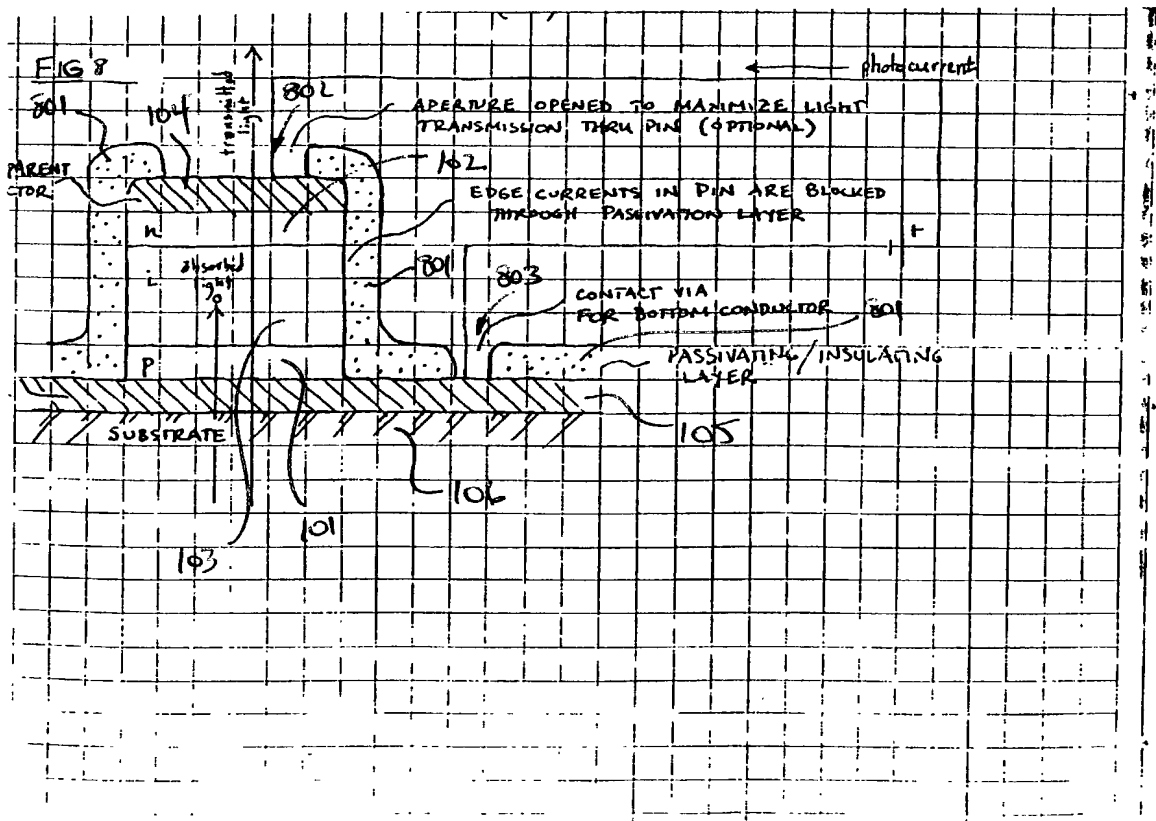 FIG 8
photocurrent
transmitted
light
801
104
802
APERTURE OPENED TO MAXIMIZE LIGHT
TRANSMISSION THRU PIN (OPTIONAL)
102
PARENT
CTOR
EDGE CURRENTS IN PIN ARE BLOCKED
THROUGH PASSIVATION LAYER
n
absorbed
light
i
801
803
CONTACT VIA
FOR BOTTOM CONDUCTOR
801
PASSIVATING/INSULATING
LAYER
P
SUBSTRATE
105
106
101
103